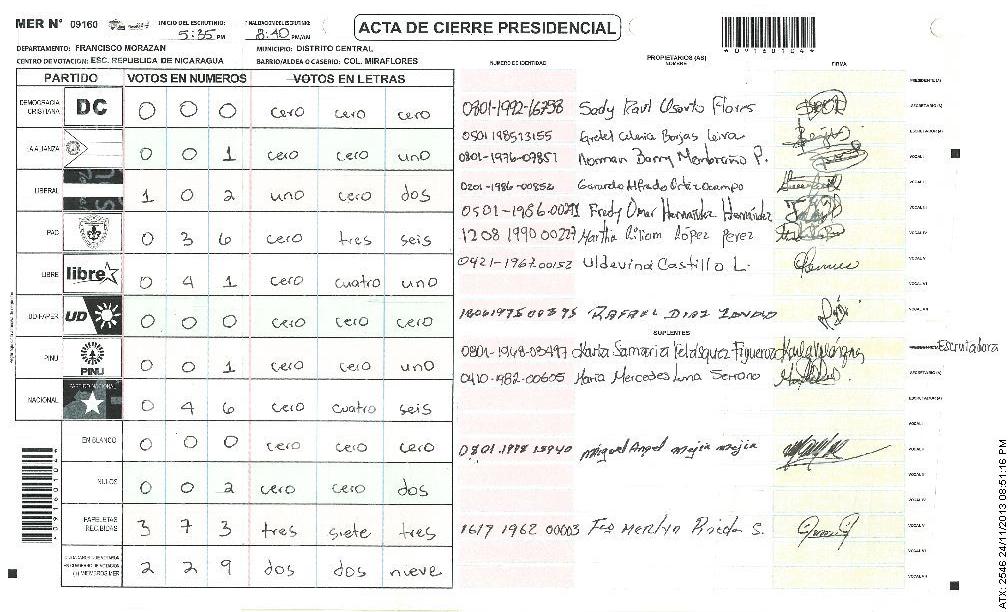 MER N° 09160 INICIO DEL ESCRUTINIO: 5:35 PM FINALIZACION DEL ESCRUTINIO: 8:40 PM/AM ACTA DE CIERRE PRESIDENCIAL
DEPARTAMENTO: FRANCISCO MORAZAN MUNICIPIO: DISTRITO CENTRAL
CENTRO DE VOTACION: ESC. REPUBLICA DE NICARAGUA BARRIO/ALDEA O CASERIO: COL. MIRAFLORES
0916010444
PARTIDO VOTOS EN NUMEROS VOTOS EN LETRAS NUMERO DE IDENTIDAD PROPIETARIOS (AS) NOMBRE FIRMA
DEMOCRACIA CRISTIANA DC 0 0 0 cero cero cero
LA ALIANZA 0 0 1 cero cero uno
LIBERAL 1 0 2 uno cero dos
PAC 0 3 6 cero tres seis
LIBRE libre 0 4 1 cero cuatro uno
UD FAPER UD 0 0 0 cero cero cero
PINU PINU 0 0 1 cero cero uno
NACIONAL PARTIDO NACIONAL 0 4 6 cero cuatro seis
EN BLANCO 0 0 0 cero cero cero
NULOS 0 0 2 cero cero dos
PAPELETAS RECIBIDAS 3 7 3 tres siete tres
2 2 9 dos dos nueve
PRESIDENTE(A)
0801-1992-16758 Sady Raul Osorto Flores SECRETARIO(A)
0501 198513155 Gretel Celenia Borjas Leiva ESCRUTADOR(A)
0801-1976-09851 Norman Barry Membreño P. VOCAL I
0201-1986-00852 Gerardo Alfredo Ortez Ocampo VOCAL II
0501-1986-00291 Fredy Omar Hernandez Hernández VOCAL III
1208 1990 00227 Martha Liliam López Perez VOCAL IV
0421-1967.00152 Uldevina Castillo L. VOCAL V
VOCAL VI
18061975 00395 RAFAEL DIAZ VOCAL VII
SUPLENTES
0801-1948-03497 Karla Samaria Velásquez Figueroa PRESIDENTE(A) Escrutadora
0410-1982-00605 Maria Mercedes Luna Serrano SECRETARIO(A)
ESCRUTADOR(A)
VOCAL I
0801.1978 15940 Miguel Angel mejia mejia VOCAL II
VOCAL III
VOCAL IV
1617 1962 00003 Marlyn Pineda S. VOCAL V
VOCAL VI
VOCAL VII
ATX: 2546 24/11/2013 08:51:16 PM